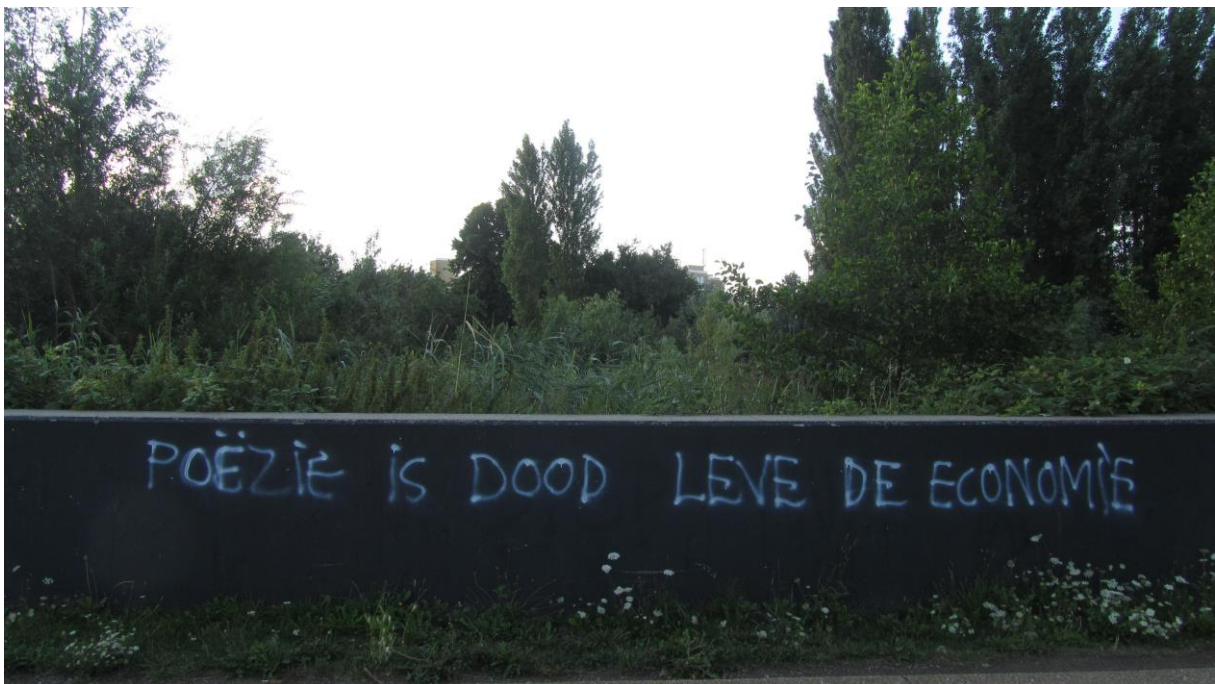 POËZiE iS DOOD LEVE DE ECONOMiE